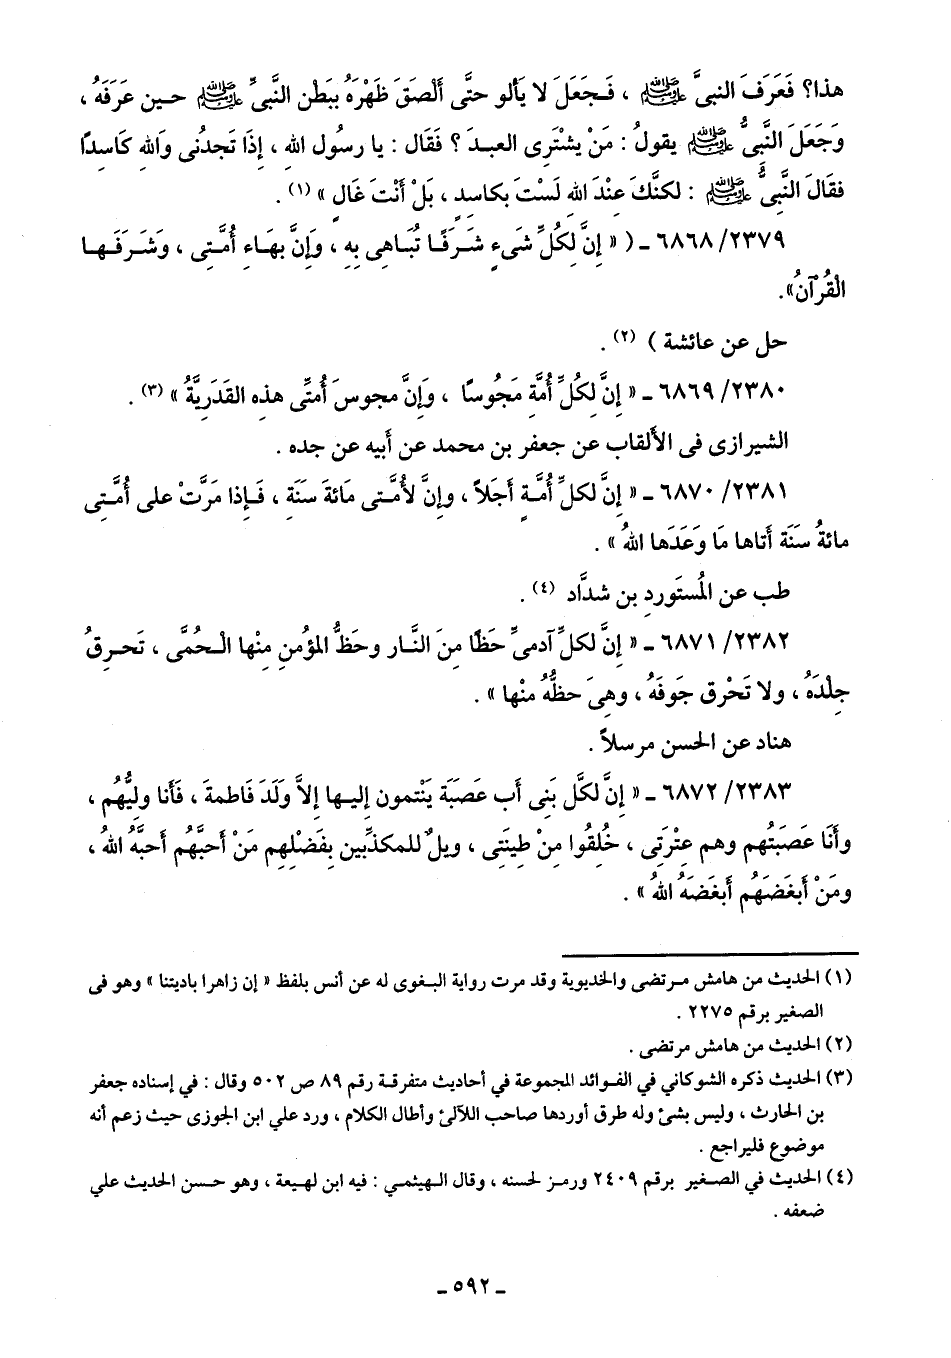 هذا؟ فَعَرَفَ النبىَّ ﷺ ، فَجعَلَ لا يَألو حتَّى ألْصَقَ ظَهْرَهُ ببَطْن النَّبىِّ ﷺ حين عَرَفَهُ ،
وَجَعَلَ النَّبىُّ ﷺ يقولُ : مَنْ يشتَرِى العبدَ ؟ فَقَال : يا رسُول الله ، إذَا تَجدُنى وَالله كَاسِدًا
فقَالَ النَّبِىُّ ﷺ : لكنَّكَ عنْدَ الله لَسْتَ بكاسد ، بَلْ أنْتَ غَالٍ » (١) .
٦٨٦٨/٢٣٧٩ ـ ( « إنَّ لِكُلِّ شَىءٍ شَرَفًا تُبَاهِى بِهِ ، وَإنَّ بهَاء أُمَّتِى ، وَشَرَفَها
القُرْآنُ».
حل عن عائشة ) (٢) .
٦٨٦٩/٢٣٨٠ ـ « إنَّ لِكُلِّ أُمَّة مَجُوسًا ، وَإنَّ مجوسَ أُمتَّى هذه القَدَرِيَّةُ » (٣) .
الشيرازى فى الألقاب عن جعفر بن محمد عن أبيه عن جده .
٦٨٧٠/٢٣٨١ ـ « إنَّ لكلِّ أُمَّةٍ أجَلاً ، وإنَّ لأُمَّتى مَائةَ سَنَةٍ ، فَإذا مَرَّتْ على أُمَّتِى
مائةُ سَنَة أتاها مَا وَعَدَها اللهُ » .
طب عن المُستَورِدِ بن شدَّاد (٤) .
٦٨٧١/٢٣٨٢ ـ « إنَّ لكلِّ آدمىٍّ حَظًا مِنَ النَّار وحَظُّ المؤمنِ منْها الحُمَّى ، تَحرِقُ
جِلْدَهُ ، ولا تَحْرِق جَوفَهُ ، وهىَ حظُّهُ منْها » .
هناد عن الحسن مرسلاً .
٦٨٧٢/٢٣٨٣ ـ « إنَّ لكَلِّ بَنِى أب عَصَبَة يَنْتمون إليها إلاَّ وَلَدَ فاطمةَ ، فَأنا وليُّهُم ،
وأنَا عَصَبَتُهم وهم عِتْرَتِى ، خُلِقُوا مِنْ طِينَتِى ، ويلٌ للمكذِّبين بفَضْلِهِم مَنْ أحبَّهُم أحبَّهُ اللهُ ،
ومَنْ أبغَضَهُم أبغَضَهُ اللهُ » .
(١) الحديث من هامش مرتضى والخديوية وقد مرت رواية البغوى له عن أنس بلفظ « إن زاهرا باديتنا » وهو فى
الصغير برقم ٢٢٧٥ .
(٢) الحديث من هامش مرتضى .
(٣) الحديث ذكره الشوكاني في الفوائد المجموعة في أحاديث متفرقة رقم ٨٩ ص ٥٠٢ وقال : في إسناده جعفر
بن الحارث ، وليس بشئ وله طرق أوردها صاحب اللآلئ وأطال الكلام ، ورد علي ابن الجوزى حيث زعم أنه
موضوع فليراجع .
(٤) الحديث في الصغير برقم ٢٤٠٩ ورمز لحسنه ، وقال الهيثمي : فيه ابن لهيعة ، وهو حسن الحديث علي
ضعفه .
ـ ٥٩٢ ـ